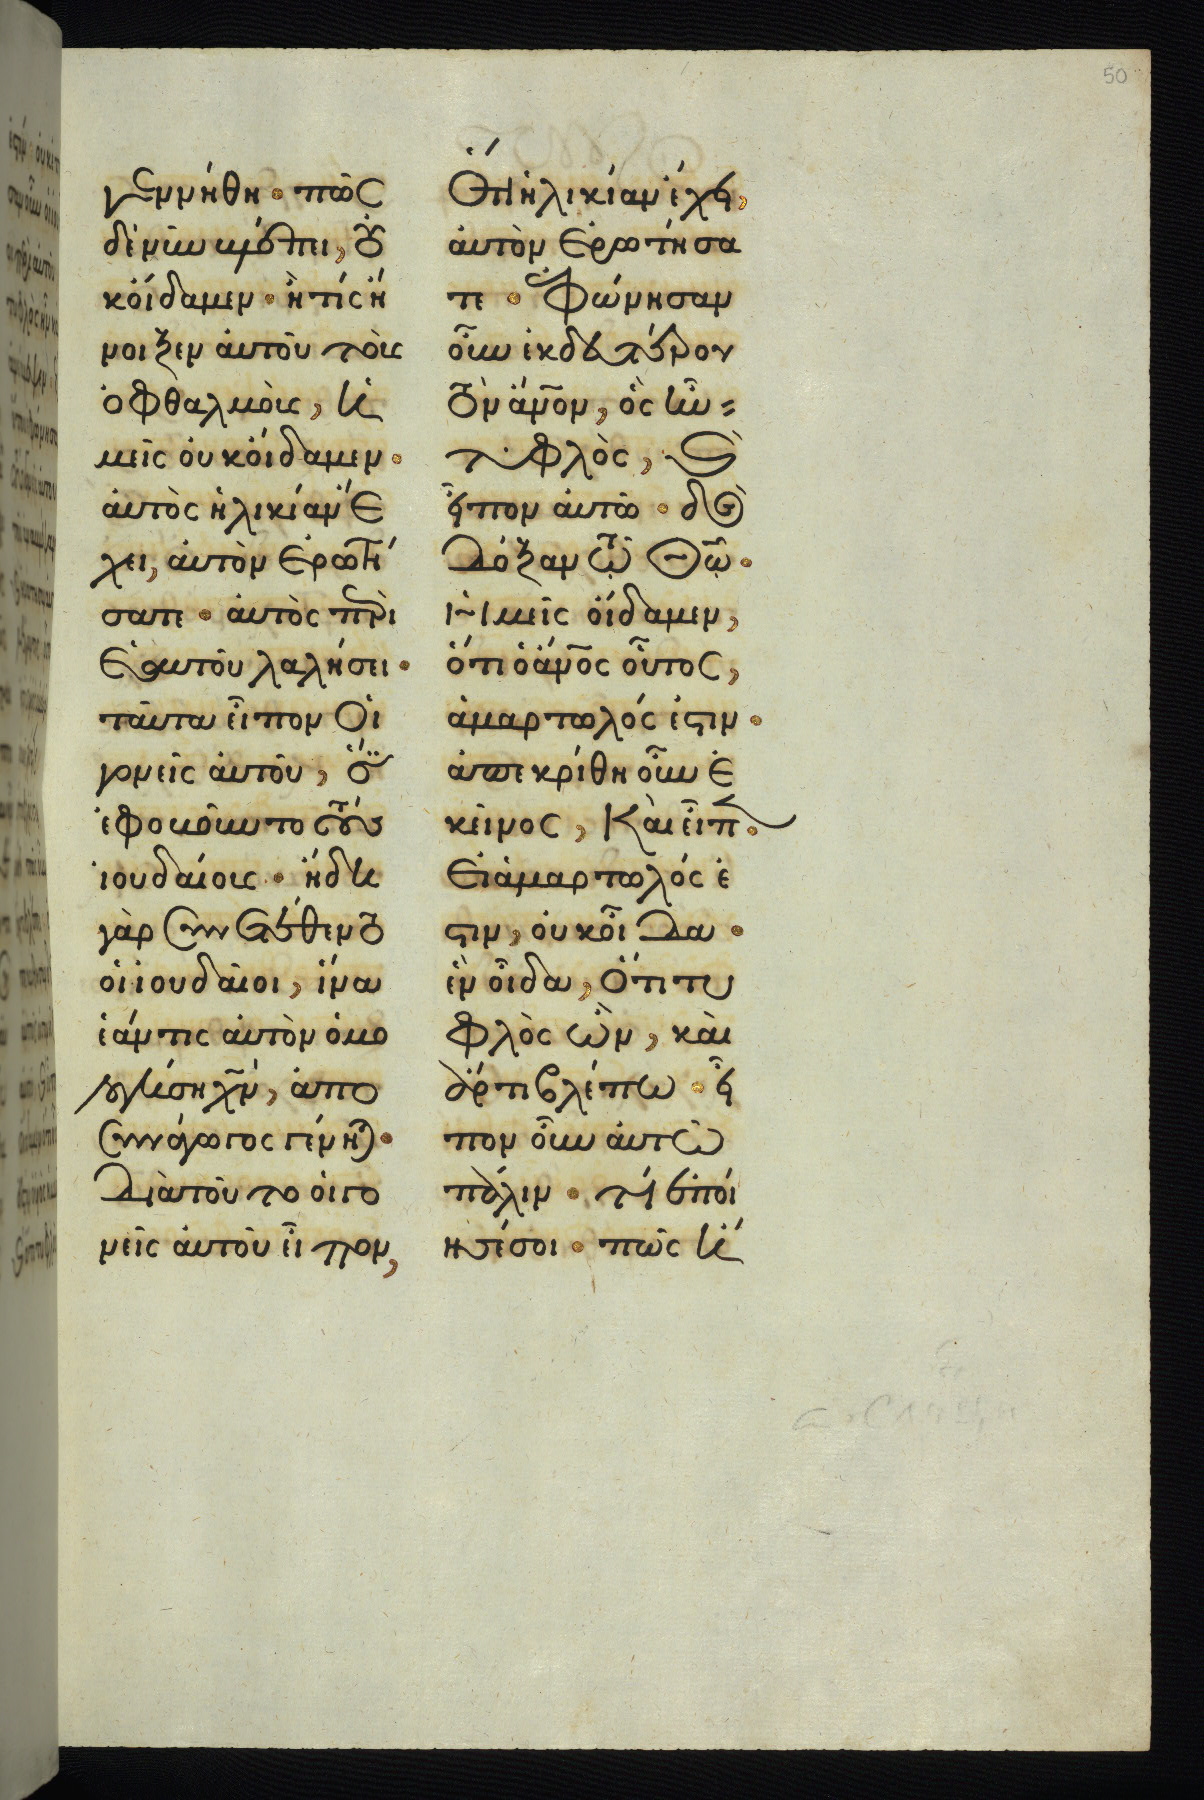 50
γεννήθη· πῶς
δὲ νῦν βλέπει, οὐ
κ οἴδαμεν· ἢ τίς ἤ
νοιξεν αὐτοῦ τοὺς
ὀφθαλμοὺς, ἡ
μεῖς οὐκ οἴδαμεν·
αὐτὸς ἡλικίαν ἔ
χει, αὐτὸν ἐρωτή
σατε· αὐτὸς περὶ
ἑαυτοῦ λαλήσει·
ταῦτα εἶπον οἱ
γονεῖς αὐτοῦ, ὅτι
ἐφοβοῦντο τοὺς
ἰουδαίους· ἤδη
γὰρ συνετέθειντο
οἱ ἰουδαῖοι, ἵνα
ἐάν τις αὐτὸν ὁμο
λογήση χν, ἀπο
συνάγωγος γένηται·
Διὰ τοῦτο οἱ γο
νεῖς αὐτοῦ εἶπον,
Ὅτι ἡλικίαν ἔχει,
αὐτὸν ἐρωτήσα
τε· Φώνησαν
οὖν ἐκ δευτέρου
τὸν ἄνον, ὃς ἦν
τυφλὸς, καὶ
εἶπον αὐτῶ· δὸς
Δόξαν τῶ Θῶ·
Ἡμεῖς οἴδαμεν,
ὅτι ὁ ἄνος οὗτος,
ἁμαρτωλός ἐστιν·
ἀπεκρίθη οὖν ἐ
κεῖνος, Καὶ εἶπεν·
Εἰ ἁμαρτωλός ἐ
στιν, οὐκ οἶδα·
ἓν οἶδα, Ὅτι τυ
φλὸς ὢν, καὶ
ἄρτι βλέπω· εἶ
πον οὖν αὐτῶ
πάλιν· τί ἐποί
ησέ σοι· πῶς ἤ